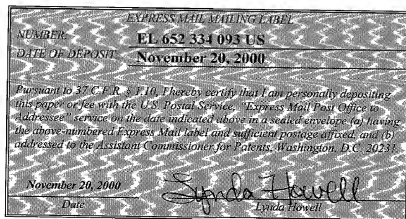 EXPRESS MAIL MAILING LABEL
NUMBER: EL 652 334 093 US
DATE OF DEPOSIT: November 20, 2000
Pursuant to 37 C.F.R. § 1.10, I hereby certify that I am personally depositing
this paper or fee with the U.S. Postal Service, "Express Mail Post Office to
Addressee" service on the date indicated above in a sealed envelope (a) having
the above-numbered Express Mail label and sufficient postage affixed, and (b)
addressed to the Assistant Commissioner for Patents, Washington, D.C. 20231.
November 20, 2000 Lynda Howell
Date Lynda Howell